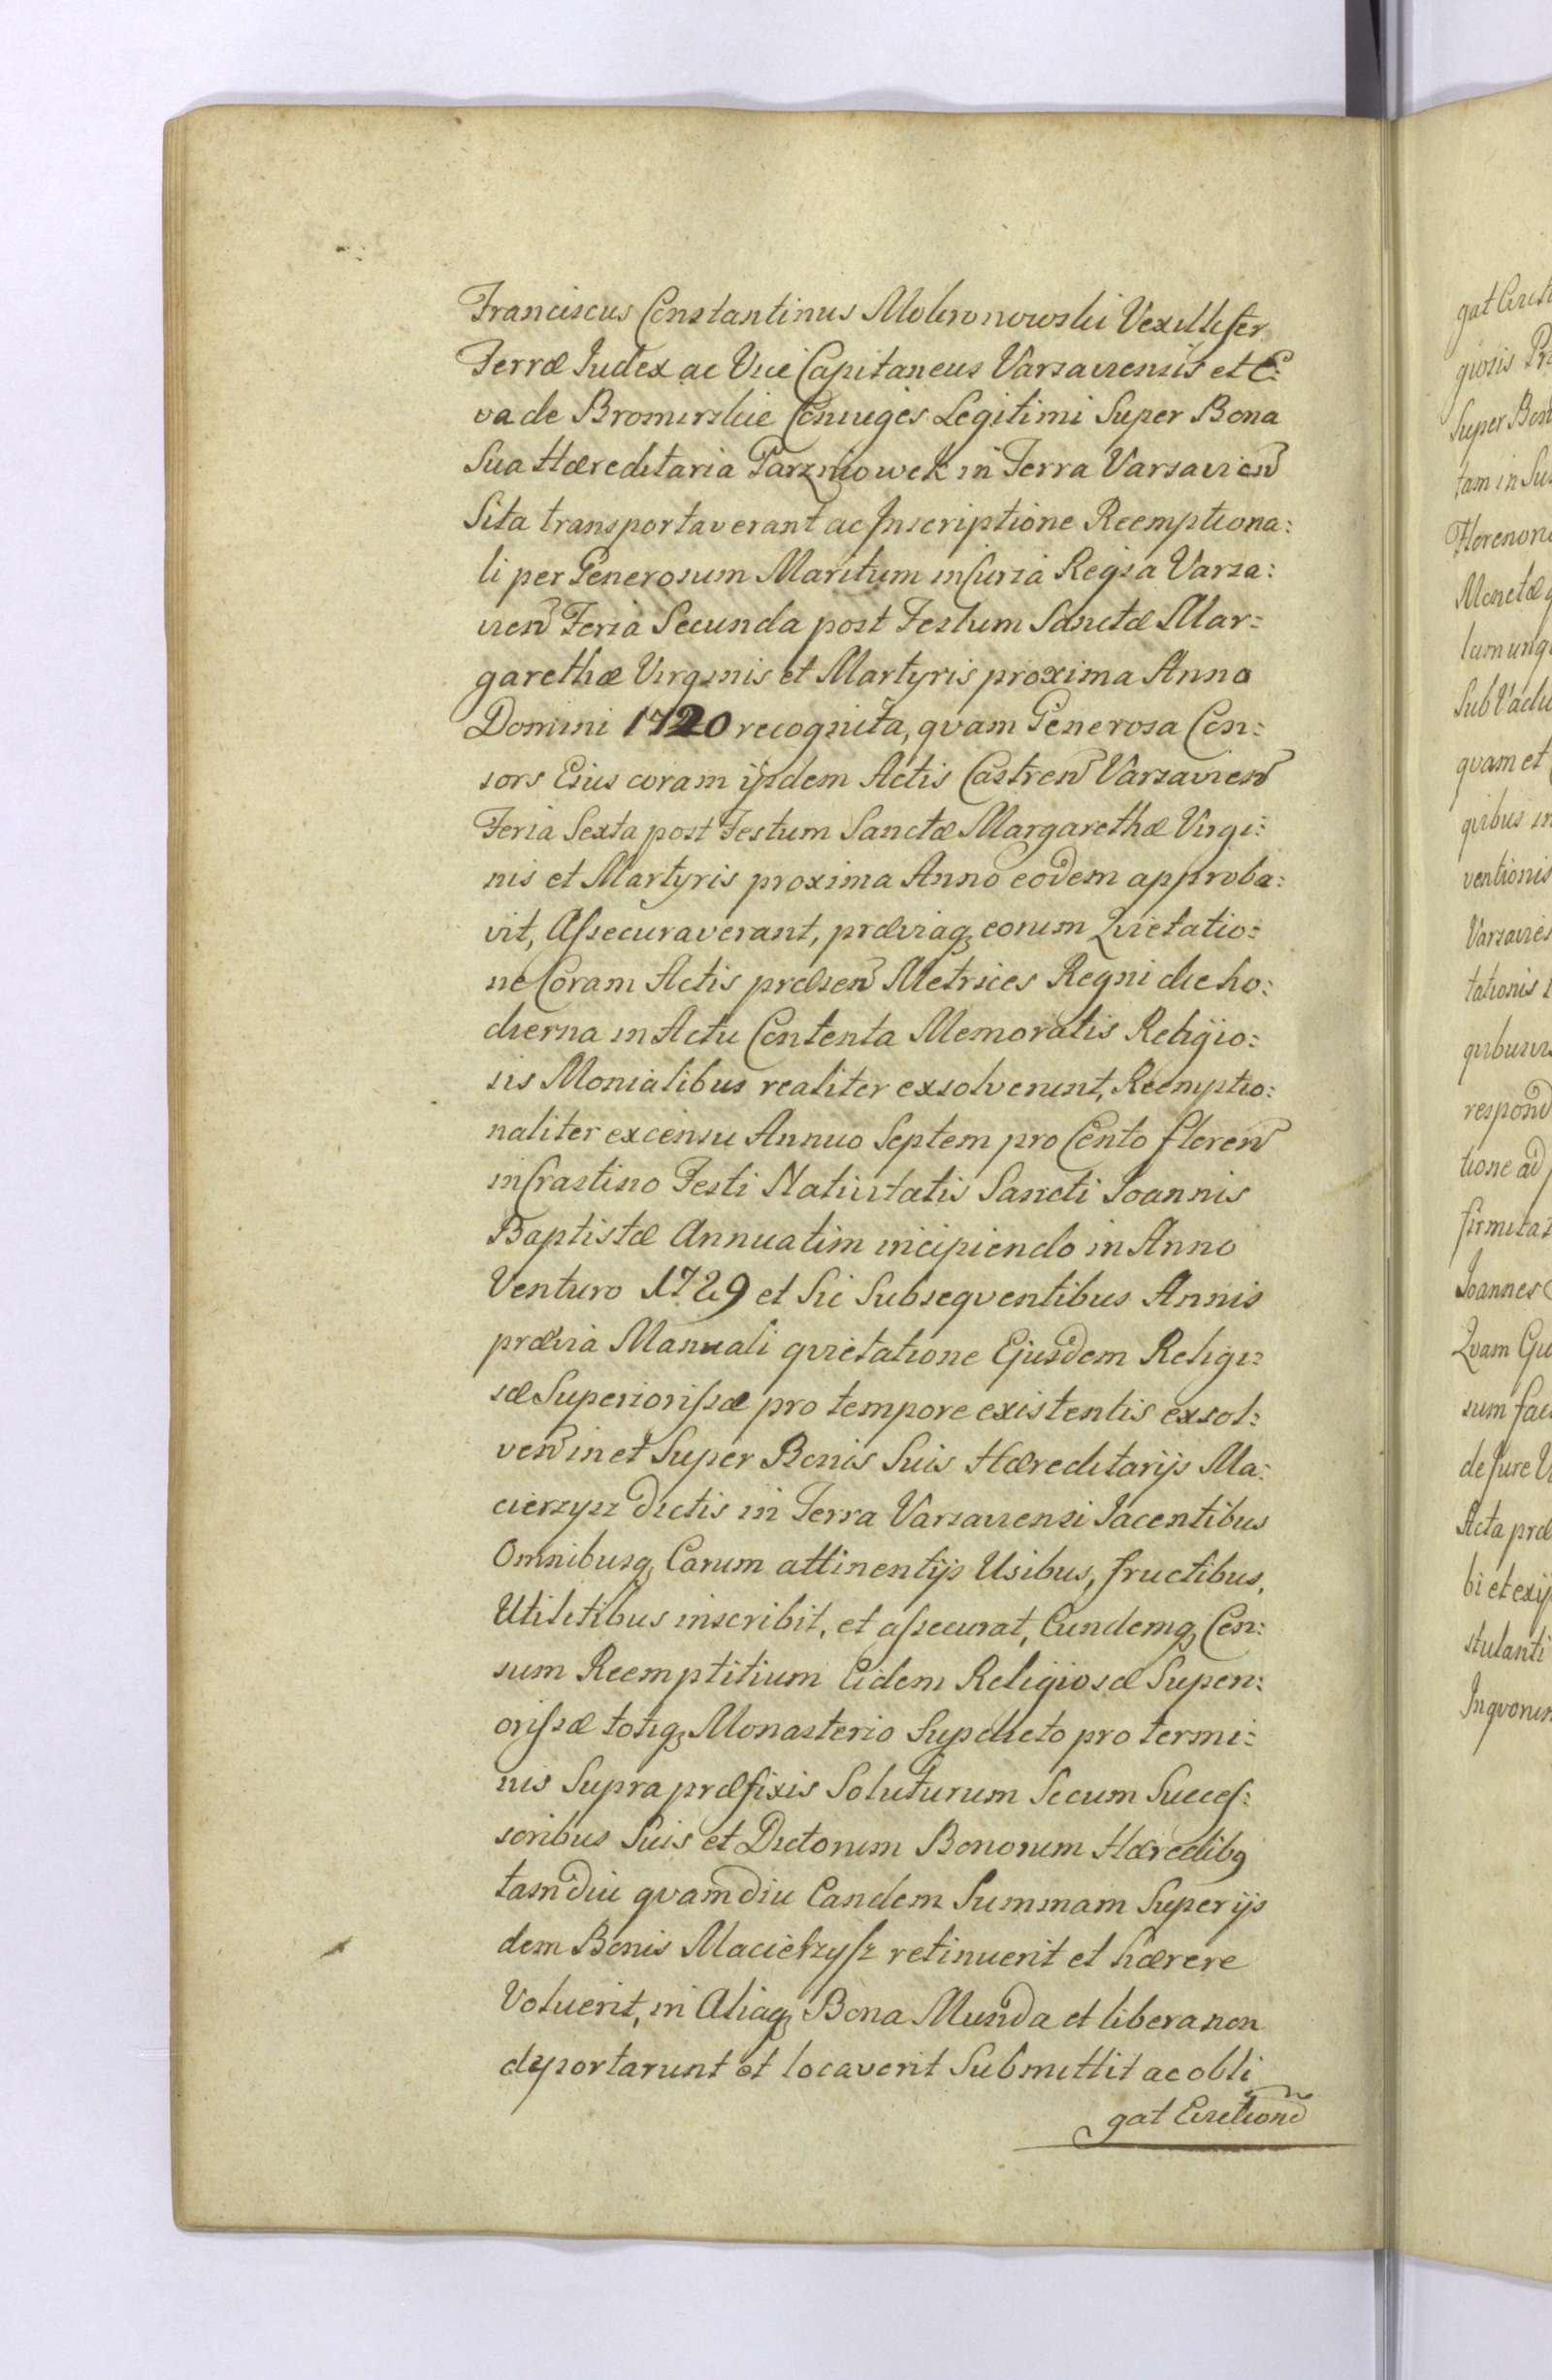 Franciscus Constantinus Mokronowski Vexillifer
Terræ Iudex ac Vice Capitaneus Varsaviensis et E:
va de Bromirskie Coniuges Legitimi Super Bona
Sua Hæreditaria Parzniowek in Terra Varsavien
Sita transportaverant ac Inscriptione Reemptiona:
li per Generosum Maritum in Curia Regia Varsa:
vien Feria Secunda post Festum Sanctæ Mar=
garethæ Virginis et Martyris proxima Anno
Domini 1720 recognita, qvam Generosa Con:
sors Eius coram ijsdem Actis Castren Varsavien
Feria Sexta post Festum Sanctæ Margarethæ Virgi:
nis et Martyris proxima Anno eodem approba:
vit, Assecuraverant, præviaq eorum Qvietatio:
ne Coram Actis præsen Metrices Regni die ho:
dierna in Actu Contenta Memoratis Religio:
sis Monialibus realiter exsolverunt, Reemptio:
naliter ex censu Annuo Septem pro Cento floren
in Crastino Festi Nativitatis Sancti Ioannis
Baptistæ Annuatim incipiendo in Anno
Venturo 1729 et Sic Subseqventibus Annis
prævia Manuali qvietatione Ejusdem Religi=
sæ Superiorissæ pro tempore existentis exsol:
ven in et Super Bonis Suis Hæreditarijs Ma:
cierzysz dictis in Terra Varsaviensi Iacentibus
Omnibusq Earum attinentijs Usibus, fructibus,
Utilitibus inscribit, et assecurat, Eundemq Cen:
sum Reemptitium Eidem Religiosæ Superi:
orissæ totiq Monasterio Supdicto pro termi:
nis Supra præfixis Soluturum Se cum Succes:
soribus Suis et Dictorum Bonorum Hæredibq
tamdiu qvamdiu Eandem Summam Super ijs
dem Bonis Macierzysz retinuerit et hærere
Voluerit, in Aliaq Bona Munda et libera non
deportarunt et locaverit Submittit ac obli
gat Evictione